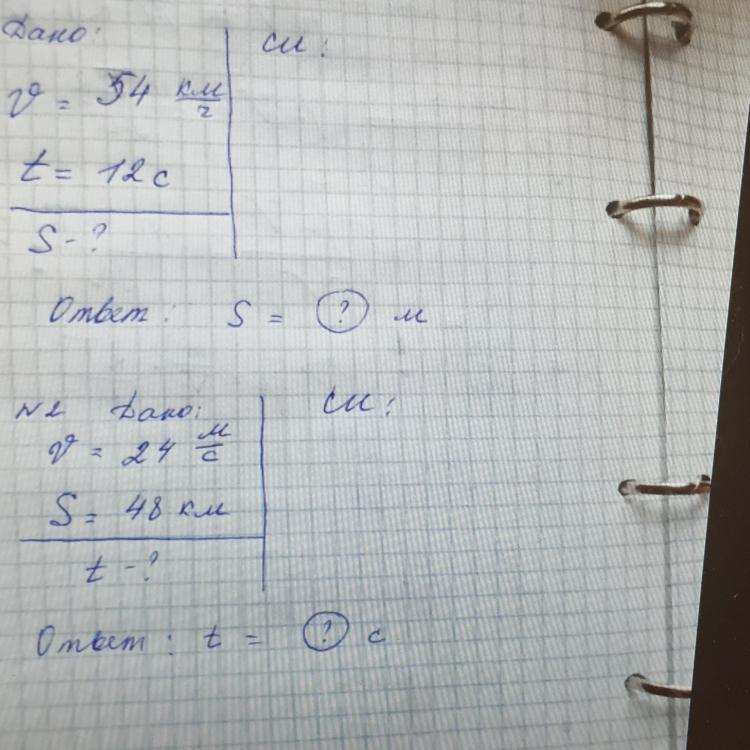 Дано: СИ:
v = 54 км/ч
t = 12 с
S - ?
Ответ: S = ? м
№2 Дано: СИ:
v = 24 м/с
S = 48 км
t - ?
Ответ: t = ? с